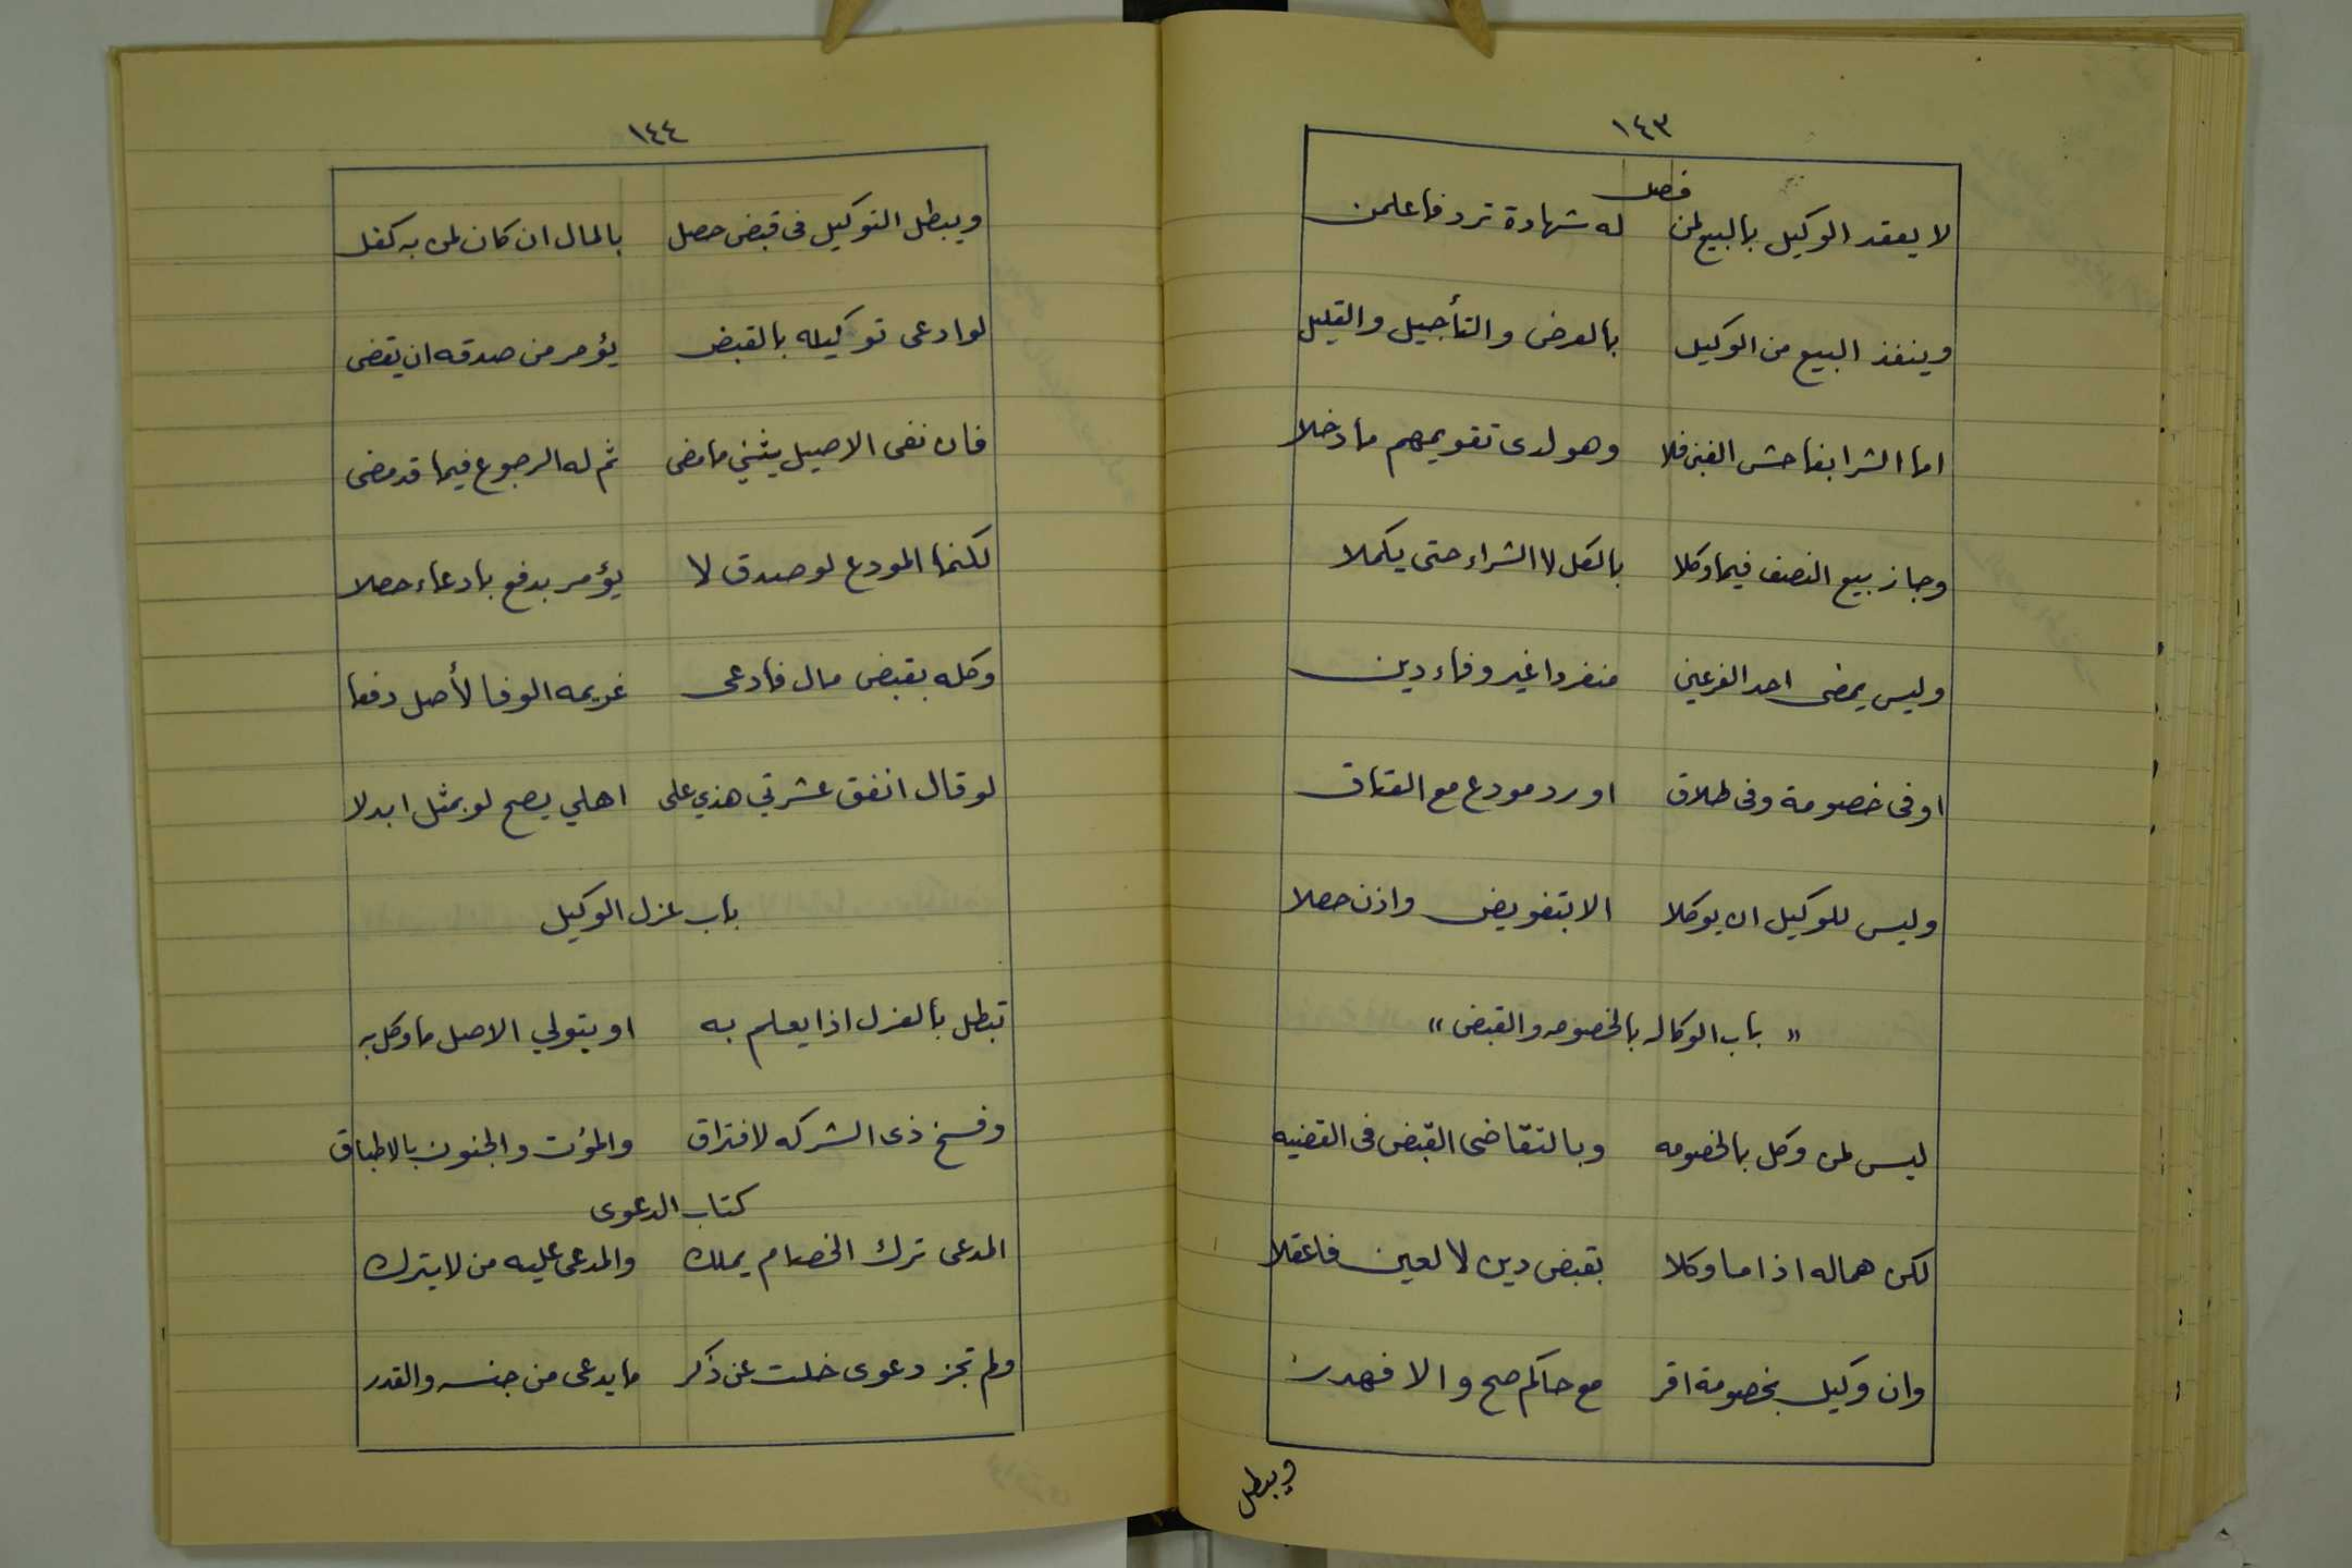 ١٤٣
فصل
لا يعقد الوكيل بالبيع لمن له شهادة ترد فاعلمن
وينفذ البيع من الوكيل بالعرض والتأجيل والقليل
اما الشرا بفاحش الغبن فلا وهو لدى تقويمهم ما دخلا
وجاز بيع النصف فيما وكلا بالكل لا الشراء حتى يكملا
وليس يمضى احد الفرعين منفردا غير وفاء دين
او فى خصومة وفى طلاق او رد مودع مع العتاق
وليس للوكيل ان يوكلا الا بتفويض واذن حصلا
" باب الوكاله بالخصومه والقبض "
ليس لمن وكل بالخصومه وبالتقاضى القبض فى القضيه
لكن هما له اذا ما وكلا بقبض دين لا لعين فاعقلا
وان وكيل بخصومة اقر مع حاكم صح والا فهدر
ويبطل
١٤٤
ويبطل التوكيل فى قبض حصل بالمال ان كان لمن به كفل
لو ادعى توكيله بالقبض يؤمر من صدقه ان يقضى
فان نفى الاصيل يثني ما مضى ثم له الرجوع فيما قد مضى
لكنما المودع لو صدق لا يؤمر بدفع بادعاء حصلا
وكله بقبض مال فادعى غريمه الوفا لأصل دفعا
لو قال انفق عشرتي هذي على اهلي يصح لو بمثل ابدلا
باب عزل الوكيل
تبطل بالعزل اذا يعلم به او يتولي الاصل ما وكل به
وفسخ ذى الشركه لافتراق والموت والجنون بالاطباق
كتاب الدعوى
المدعى ترك الخصام يملك والمدعى عليه من لا يترك
ولم تجز دعوى خلت عن ذكر ما يدعى من جنسه والقدر